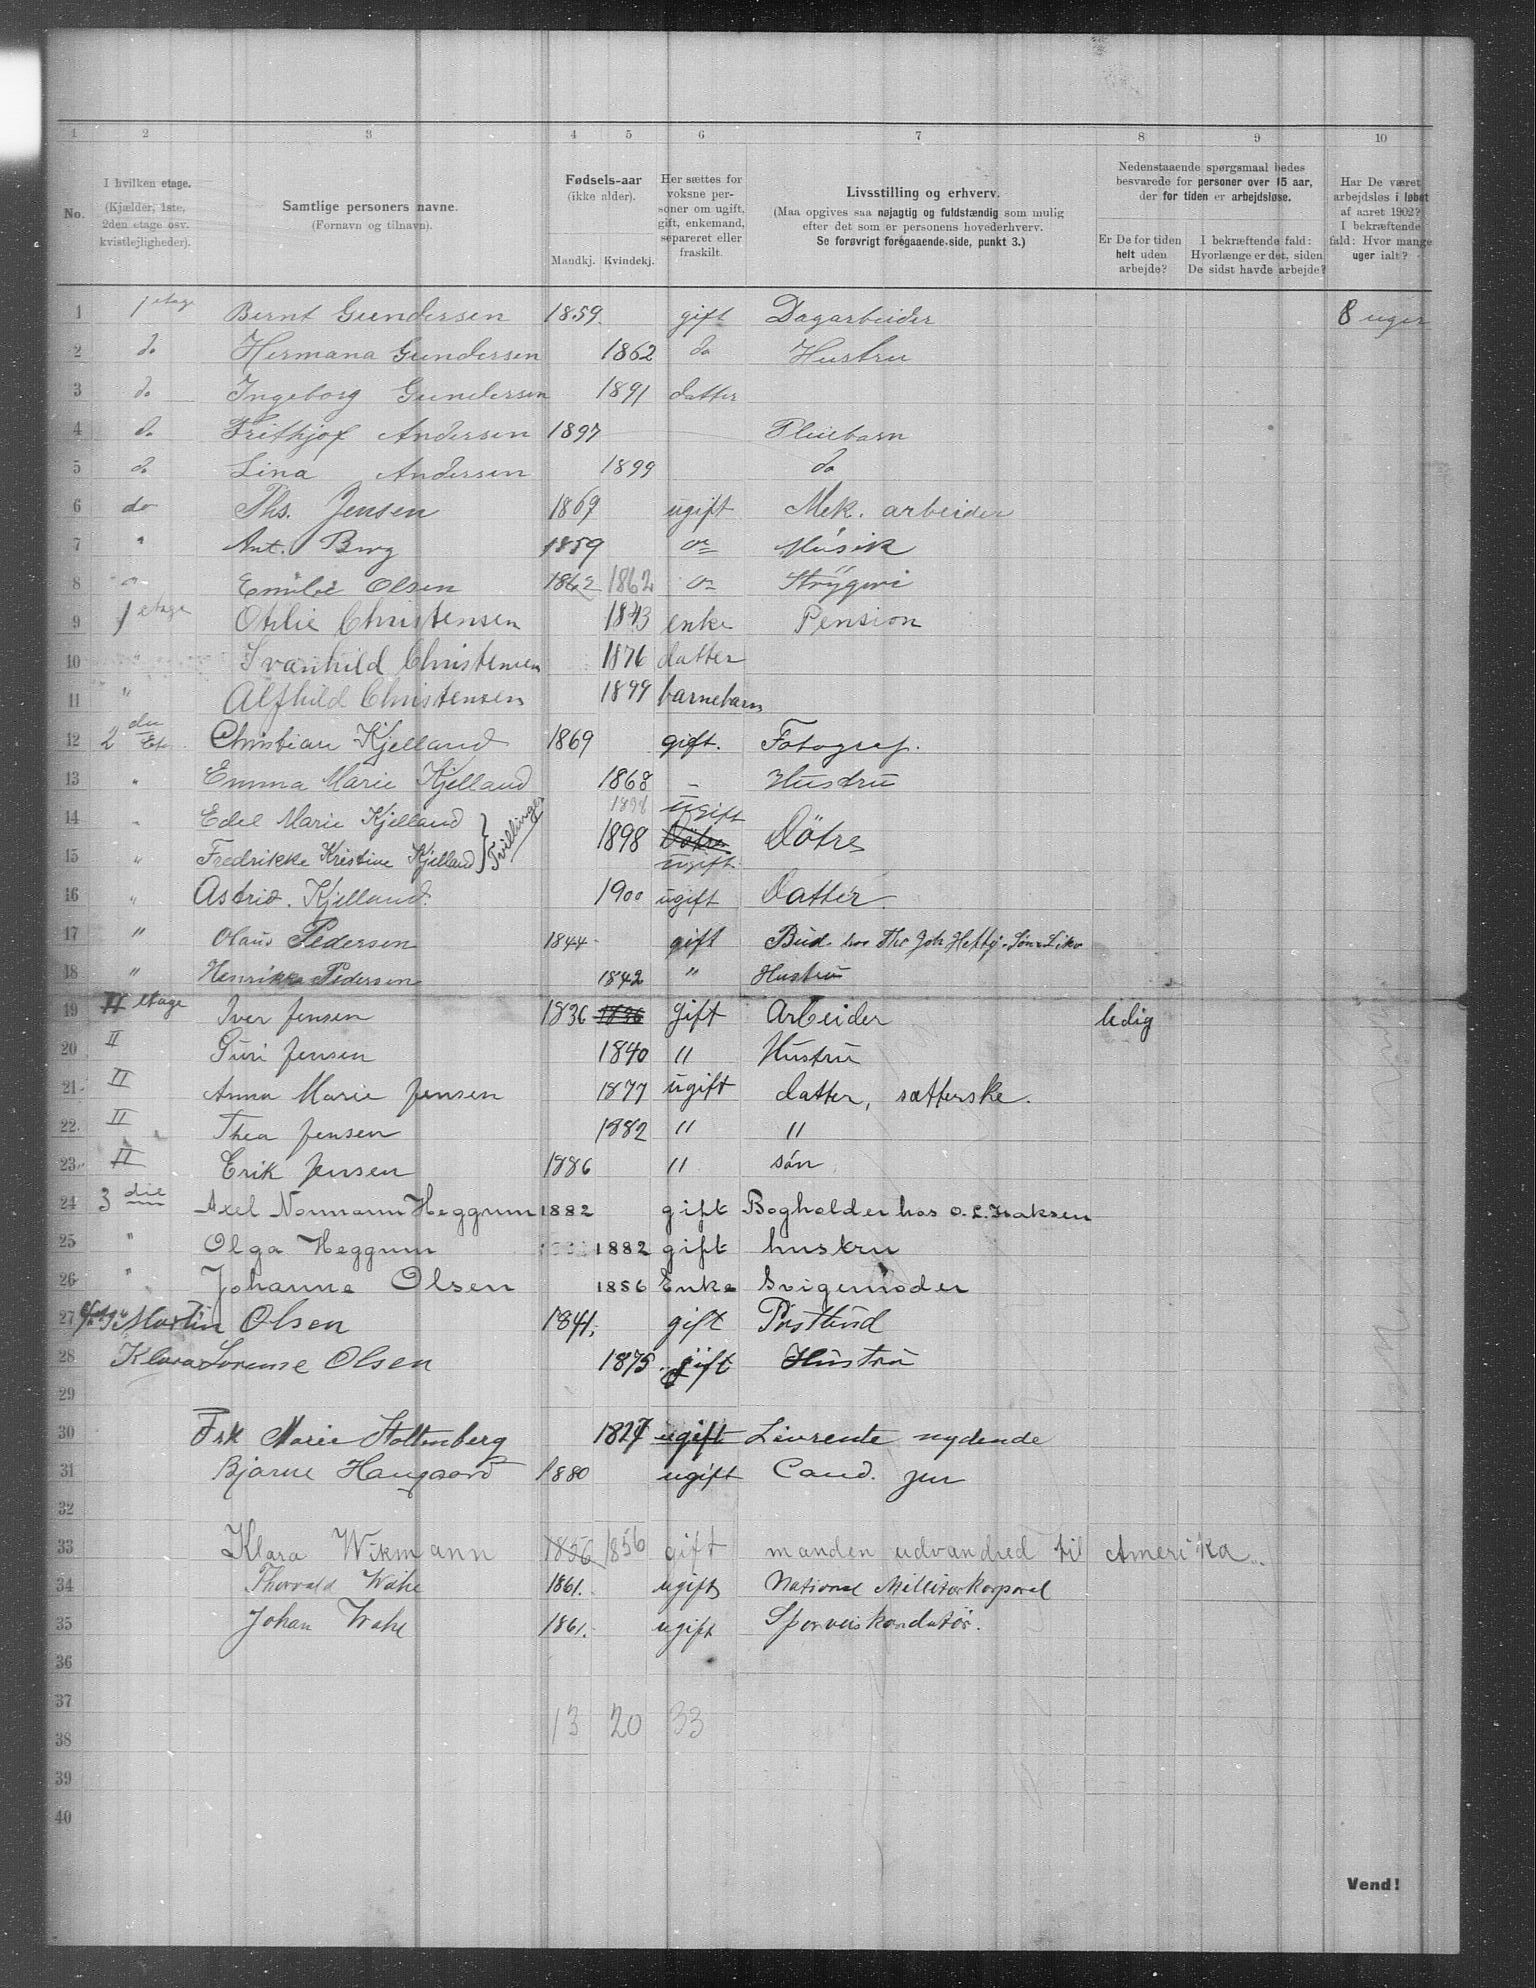 1 2 3 4 5 6 7 8 9 10
No.
I hvilken etage.
(Kjælder, 1ste, 2den etage osv. kvistlejligheder).
Samtlige personers navne.
(Fornavn og tilnavn).
Fødsels-aar
(ikke alder).
Mandkj. Kvindekj.
Her sættes for voksne personer om ugift, gift, enkemand, separeret eller fraskilt.
Livsstilling og erhverv.
(Maa opgives saa nøjagtig og fuldstændig som mulig efter det som er personens hovederhverv.
Se forøvrigt foregaaende side, punkt 3.)
Nedenstaaende spørgsmaal bedes besvarede for personer over 15 aar, der for tiden er arbejdsløse.
Er De for tiden helt uden arbejde?
I bekræftende fald: Hvorlænge er det, siden De sidst havde arbejde?
Har De været arbejdsløs i løbet af aaret 1902? I bekræftende fald: Hvor mange uger ialt?
1 1 etage Bernt Gundersen 1859. gift Dagarbeider 8 uger
2 do Hermana Gundersen 1862 do Hustru
3 do Ingeborg Gundersen 1891 datter
4 do Frithjof Andersen 1897 Pleiebarn
5 do Lina Andersen 1899 do
6 do Ths. Jensen 1869 ugift Mek. arbeider
7 " Ant. Berg 1859 Musik
8 Emilie Olsen 1862 1862 Strygeri
9 1 etage Othlie Christensen 1843 enke Pension
10 " Svanhild Christensen 1876 datter
11 " Alfhild Christensen 1899 barnebarn
12 2 den Et. Christian Kjelland 1869 gift. Fotograf.
13 " Emma Marie Kjelland 1868 - Hustru
14 " Edel Marie Kjelland } Tvillinger 1898 ugift
1898 Døtre Døtre
15 " Fredrikke Kristine Kjelland ugift.
16 " Astrid. Kjelland. 1900 ugift Datter.
17 " Olaus Pedersen 1844 gift Bud hos Joh
18 " Henrikka Pedersen 1842 " Hustru
19 II etage Iver Jensen 1836 1836 gift Arbeider ledig
20 II Guri Jensen 1840 " Hustru
21 II Anna Marie Jensen 1877 ugift datter, sætterske.
22 II Thea Jensen 1882 " "
23 II Erik Jensen 1886 " søn
24 3 die Axel Normann Heggum 1882 gift Bogholder hos O. L. Isaksen
25 " Olga Heggum 1882 gift hustru
26 " Johanne Olsen 1856 Enke Svigemoder
27 Martin Olsen 1841. gift Postbud
28 Klara Lorense Olsen 1875. gift Hustru
29
30 Frk Marie Stoltenberg 1827 ugift Livrente nydende
31 Bjarne Haugaard 1880 ugift Cand. jur
32
33 Klara Wikmann 1856 1856 gift manden udvandred til Amerika.
34 Thorvald Wahl 1861. ugift National Millitærkorporal
35 Johan Wahl 1861. ugift Sporveiskonduktør.
36
37
13 20 33
38
39
40
Vend!